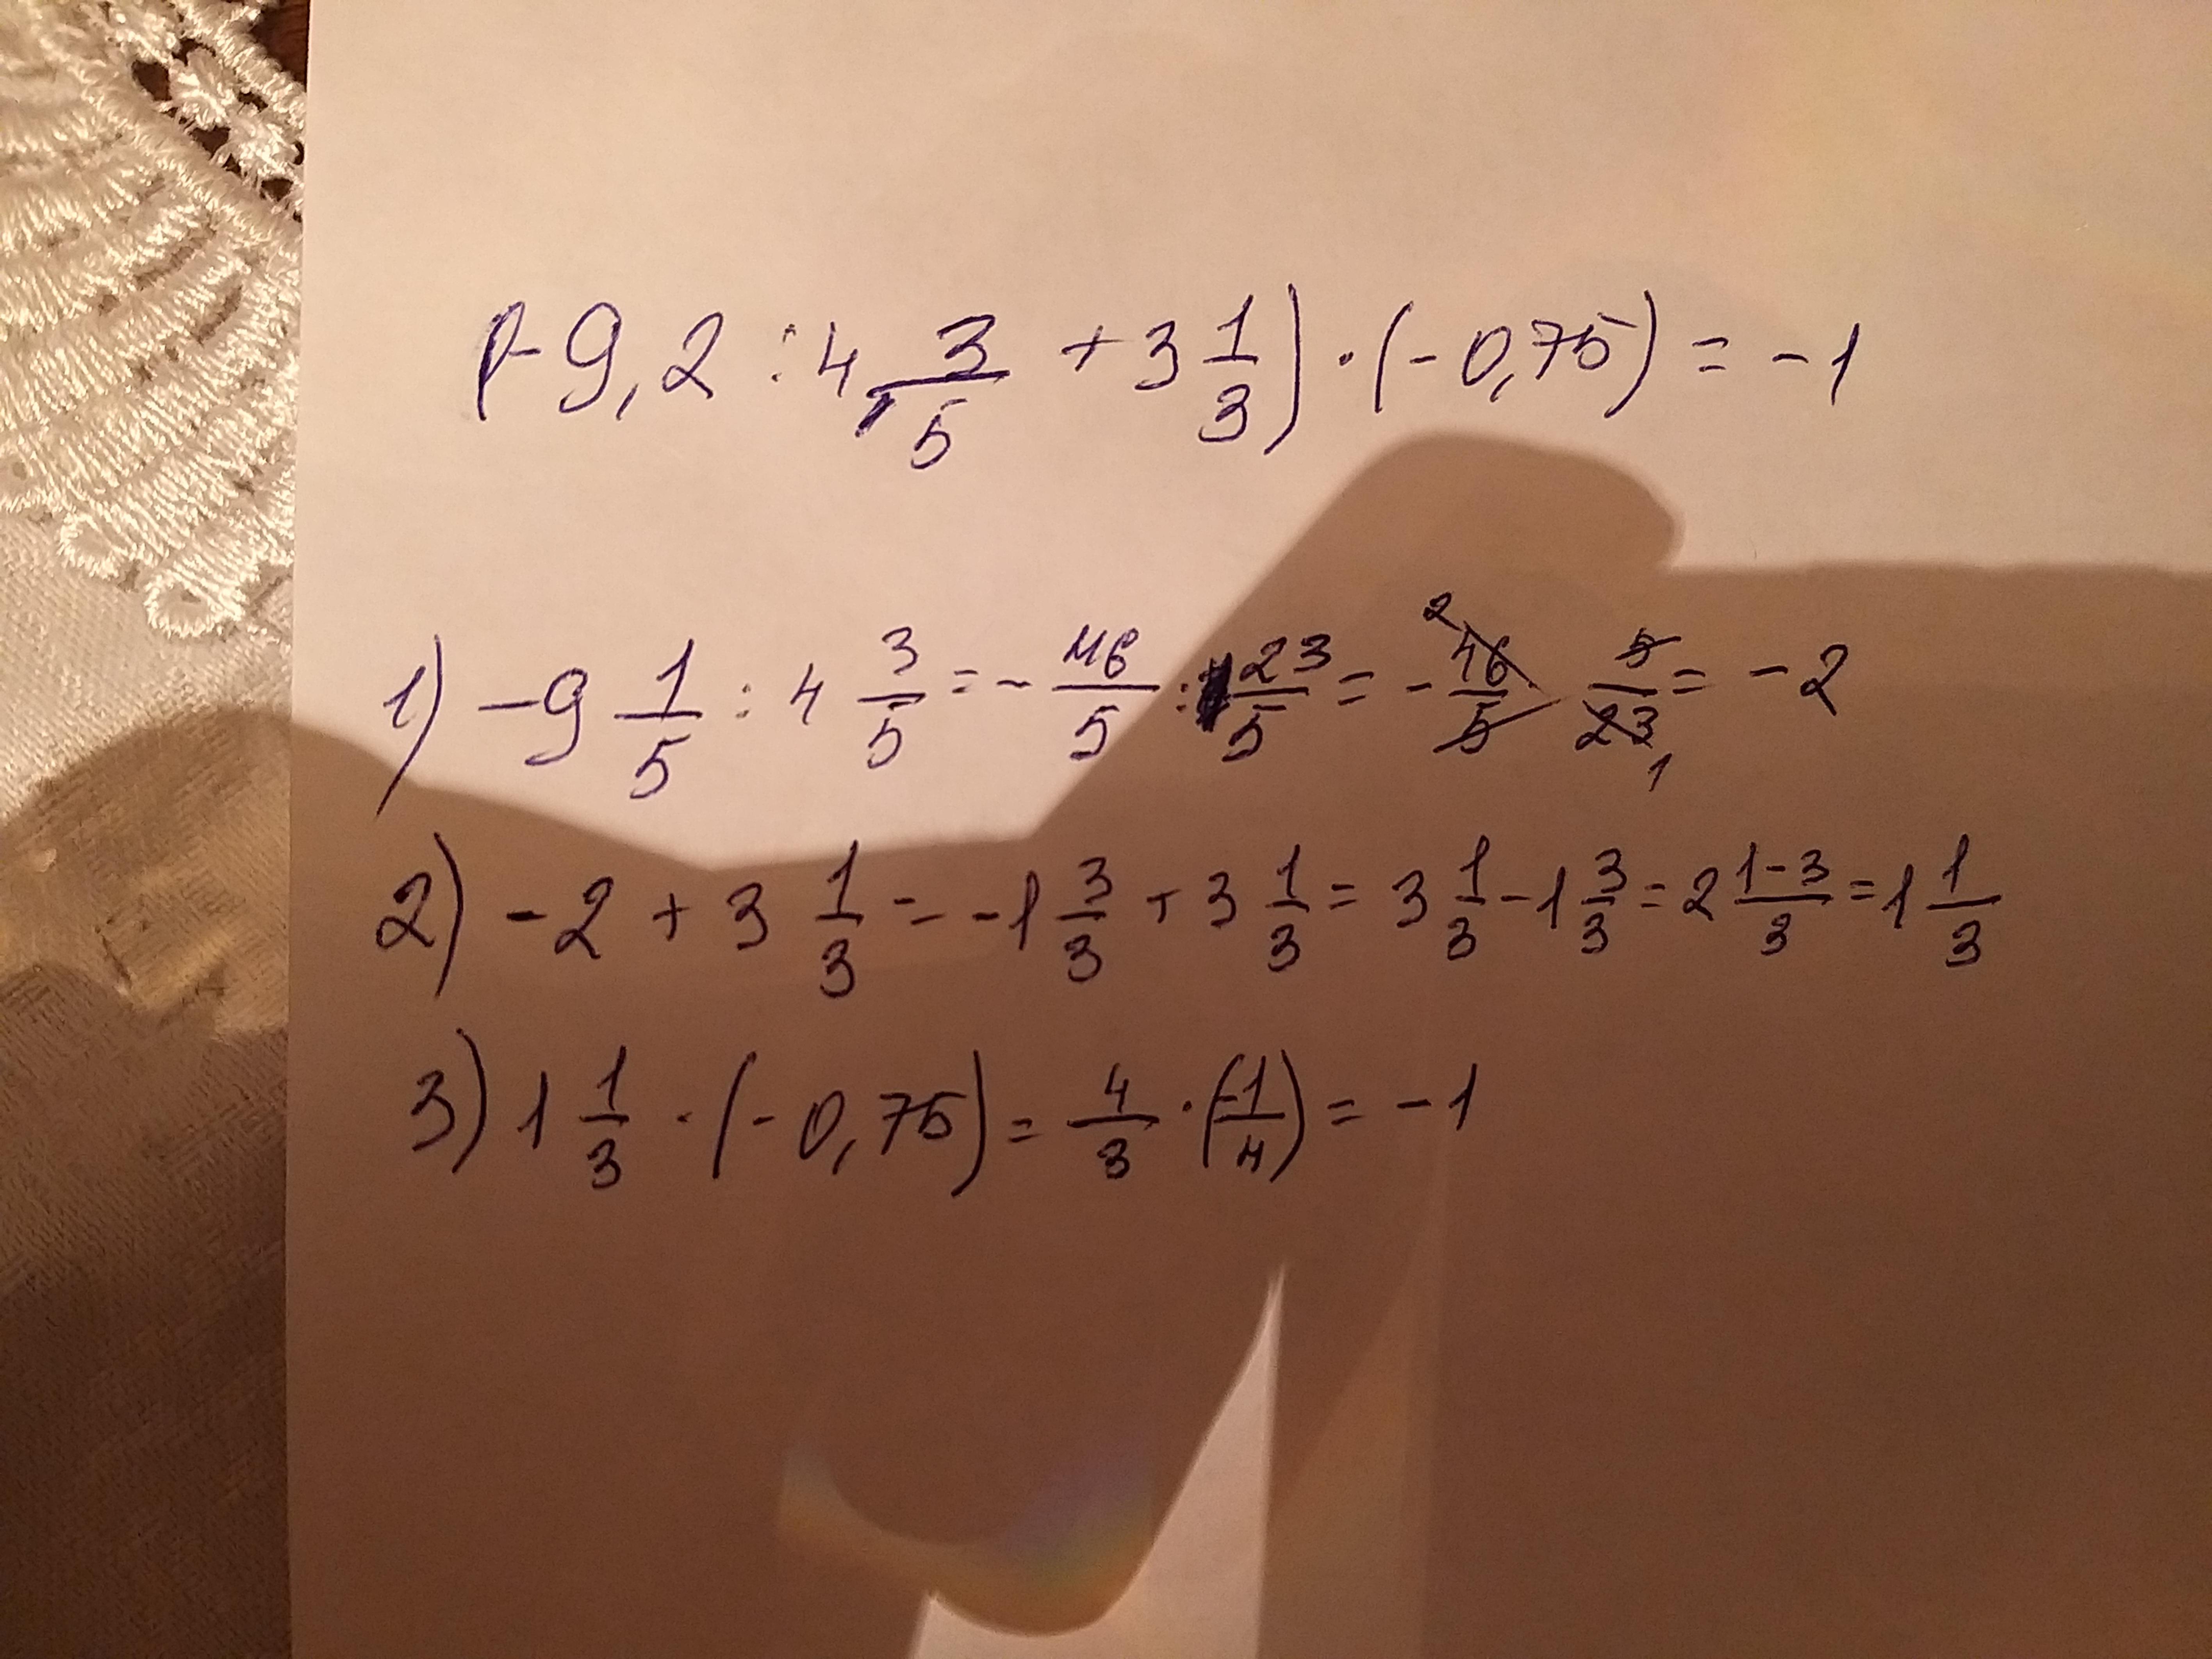 (-9,2 : 4 3/5 + 3 1/3) · (-0,75) = -1
1) -9 1/5 : 4 3/5 = - 46/5 : 23/5 = - 46/5 5/23 = -2
2 1
2) -2 + 3 1/3 = -1 3/3 + 3 1/3 = 3 1/3 - 1 3/3 = 2 1-3/3 = 1 1/3
3) 1 1/3 · (-0,75) = 4/3 · (-1/4) = -1